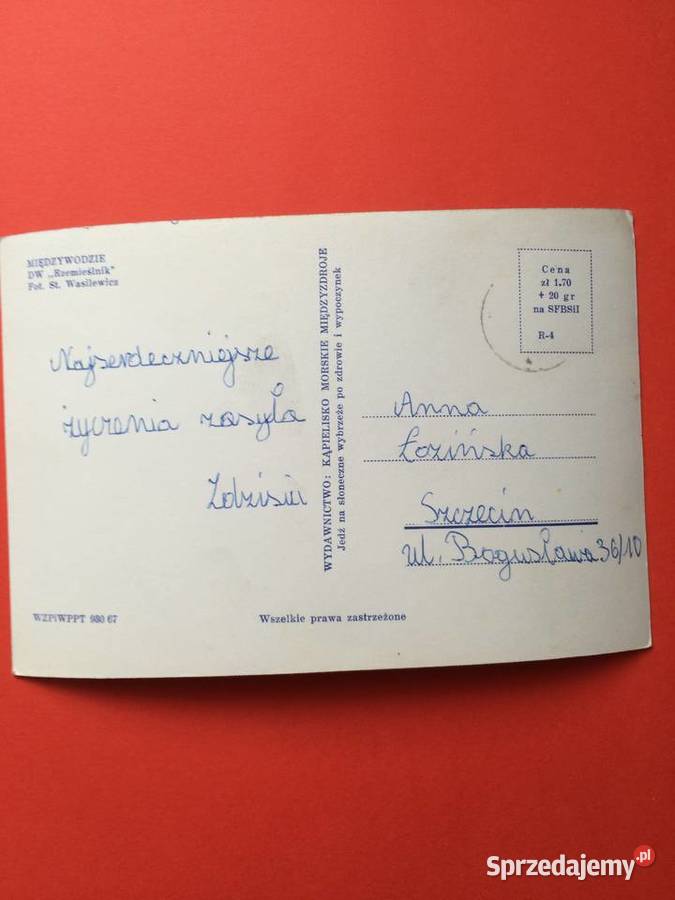 MIĘDZYWODZIE
DW „Rzemieślnik"
Fot. St. Wasilewicz
Najserdeczniejsze
życzenia zasyła
Zdzisiu
WZPiWPPT 980 67
WYDAWNICTWO: KĄPIELISKO MORSKIE MIĘDZYZDROJE
Jedź na słoneczne wybrzeże po zdrowie i wypoczynek
Wszelkie prawa zastrzeżone
Cena
zł 1.70
+ 20 gr
na SFBSiI
R-4
Anna
Łozińska
Szczecin
ul. Bogusława 36/10
Sprzedajemy.pl